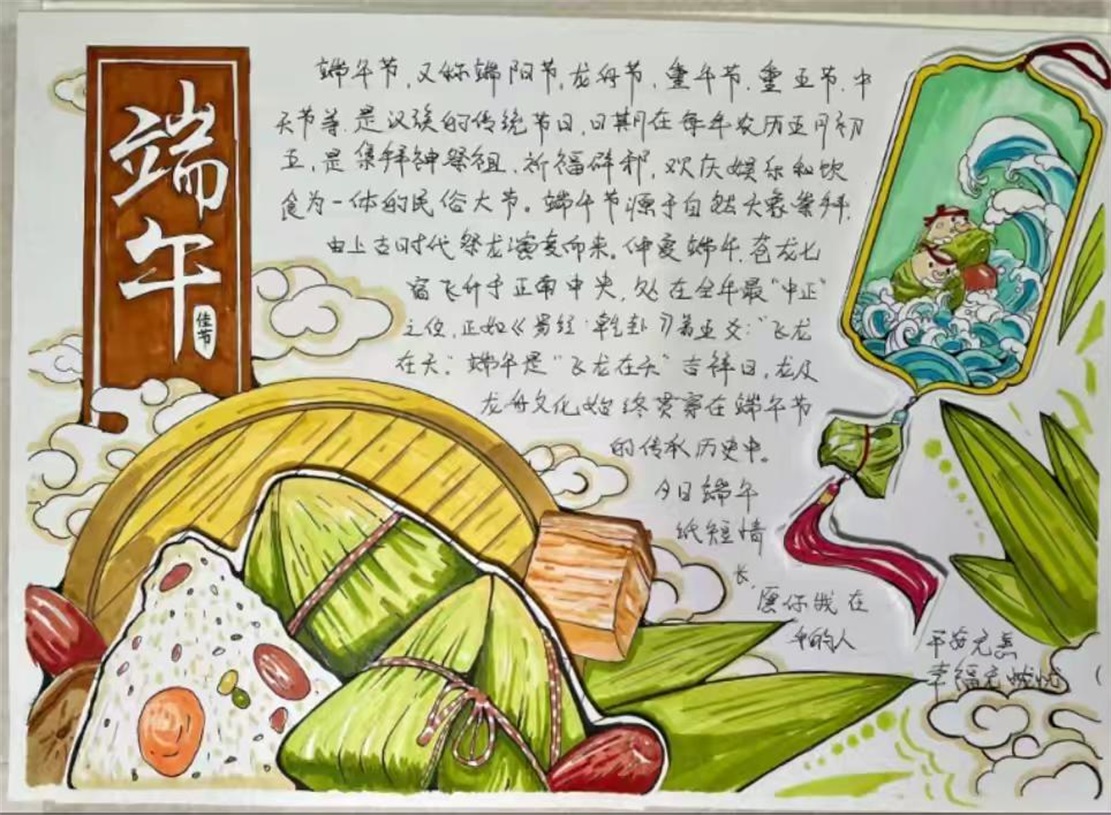 端午
佳节
端午节，又称端阳节，龙舟节，重午节，重五节，中
天节等，是汉族的传统节日，日期在每年农历五月初
五，是集拜神祭祖，祈福辟邪，欢庆娱乐和饮
食为一体的民俗大节。端午节源于自然天象崇拜，
由上古时代祭龙演变而来。仲夏端午，苍龙七
宿飞升于正南中央，处在全年最“中正”
之位，正如《易经·乾卦》第五爻：“飞龙
在天”。端午是“飞龙在天”吉祥日，龙及
龙舟文化始终贯穿在端午节
的传承历史中。
今日端午
纸短情
长，愿你我在
平安无恙
幸福无